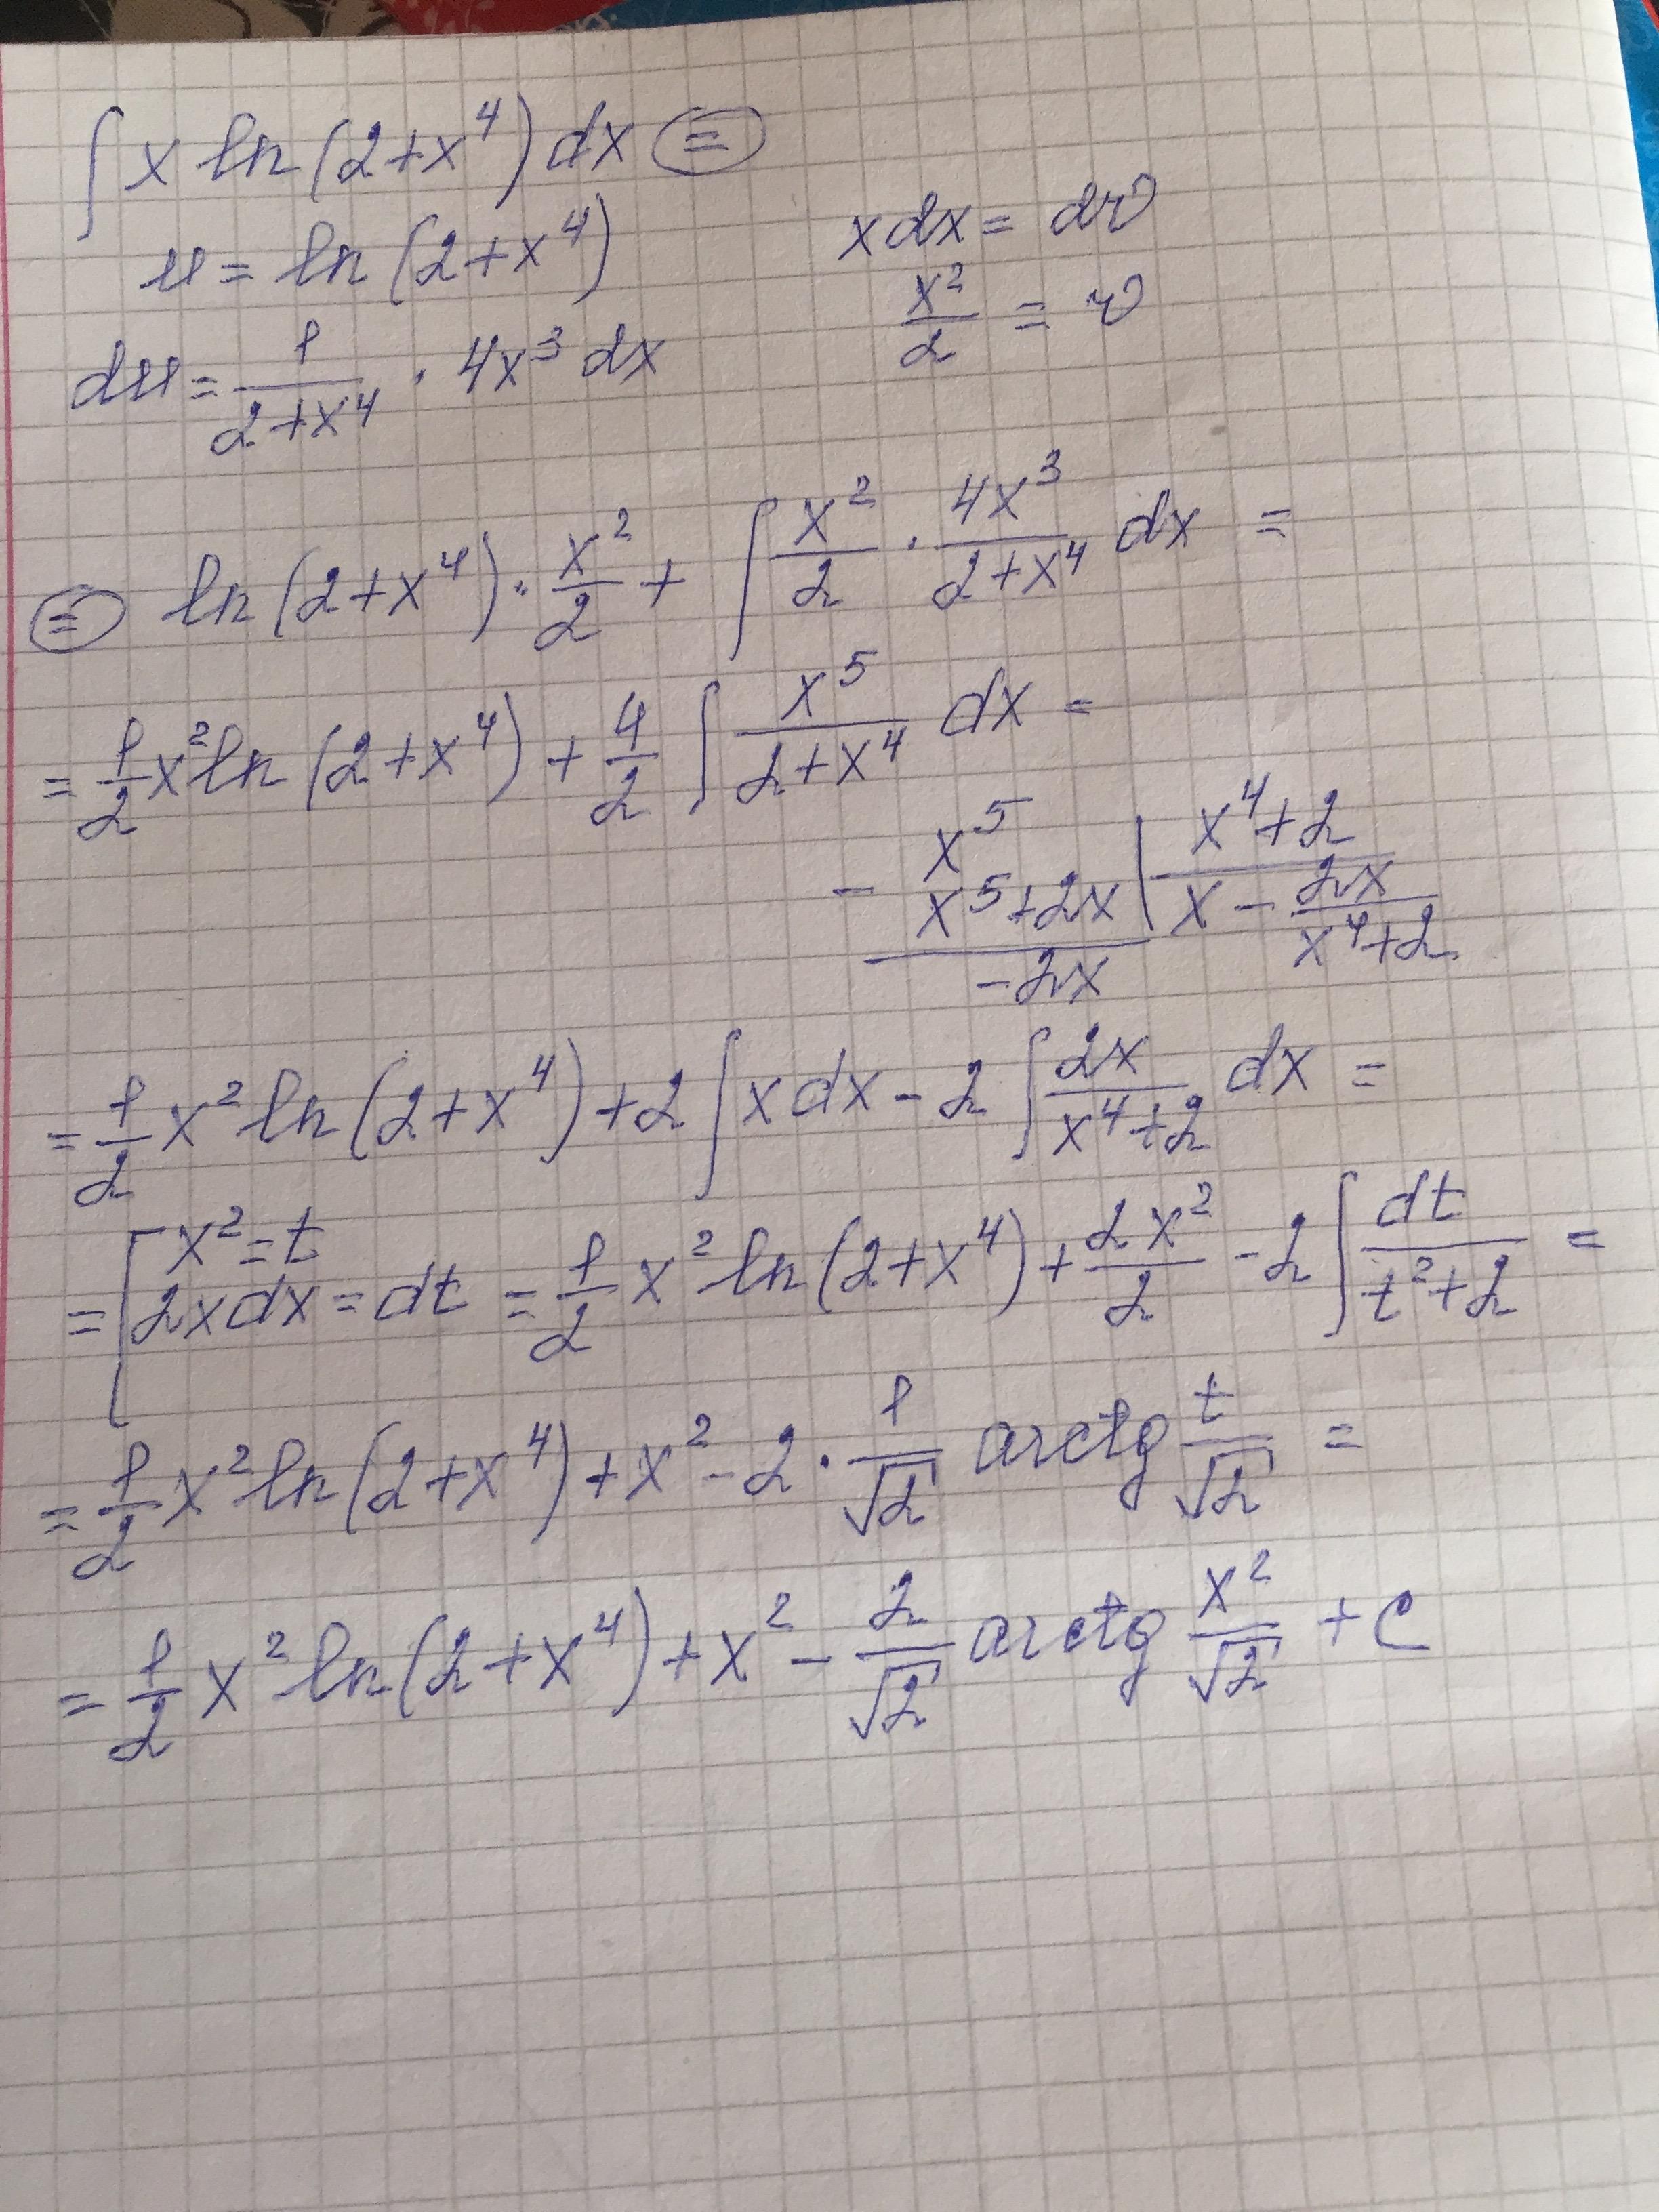 ∫ x ln(2+x⁴) dx ⊜
u = ln(2+x⁴)    x dx = dv
du = 1/(2+x⁴) · 4x³ dx    x²/2 = v
⊜ ln(2+x⁴) · x²/2 + ∫ x²/2 · 4x³/(2+x⁴) dx =
= 1/2 x² ln(2+x⁴) + 4/2 ∫ x⁵/(2+x⁴) dx =
x⁵ | x⁴+2
− x⁵+2x | x − 2x/(x⁴+2)
−2x
= 1/2 x² ln(2+x⁴) + 2 ∫ x dx − 2 ∫ 2x/(x⁴+2) dx =
= [ x² = t
2x dx = dt = 1/2 x² ln(2+x⁴) + 2x²/2 − 2 ∫ dt/(t²+2) =
= 1/2 x² ln(2+x⁴) + x² − 2 · 1/√2 arctg t/√2 =
= 1/2 x² ln(2+x⁴) + x² − 2/√2 arctg x²/√2 + C